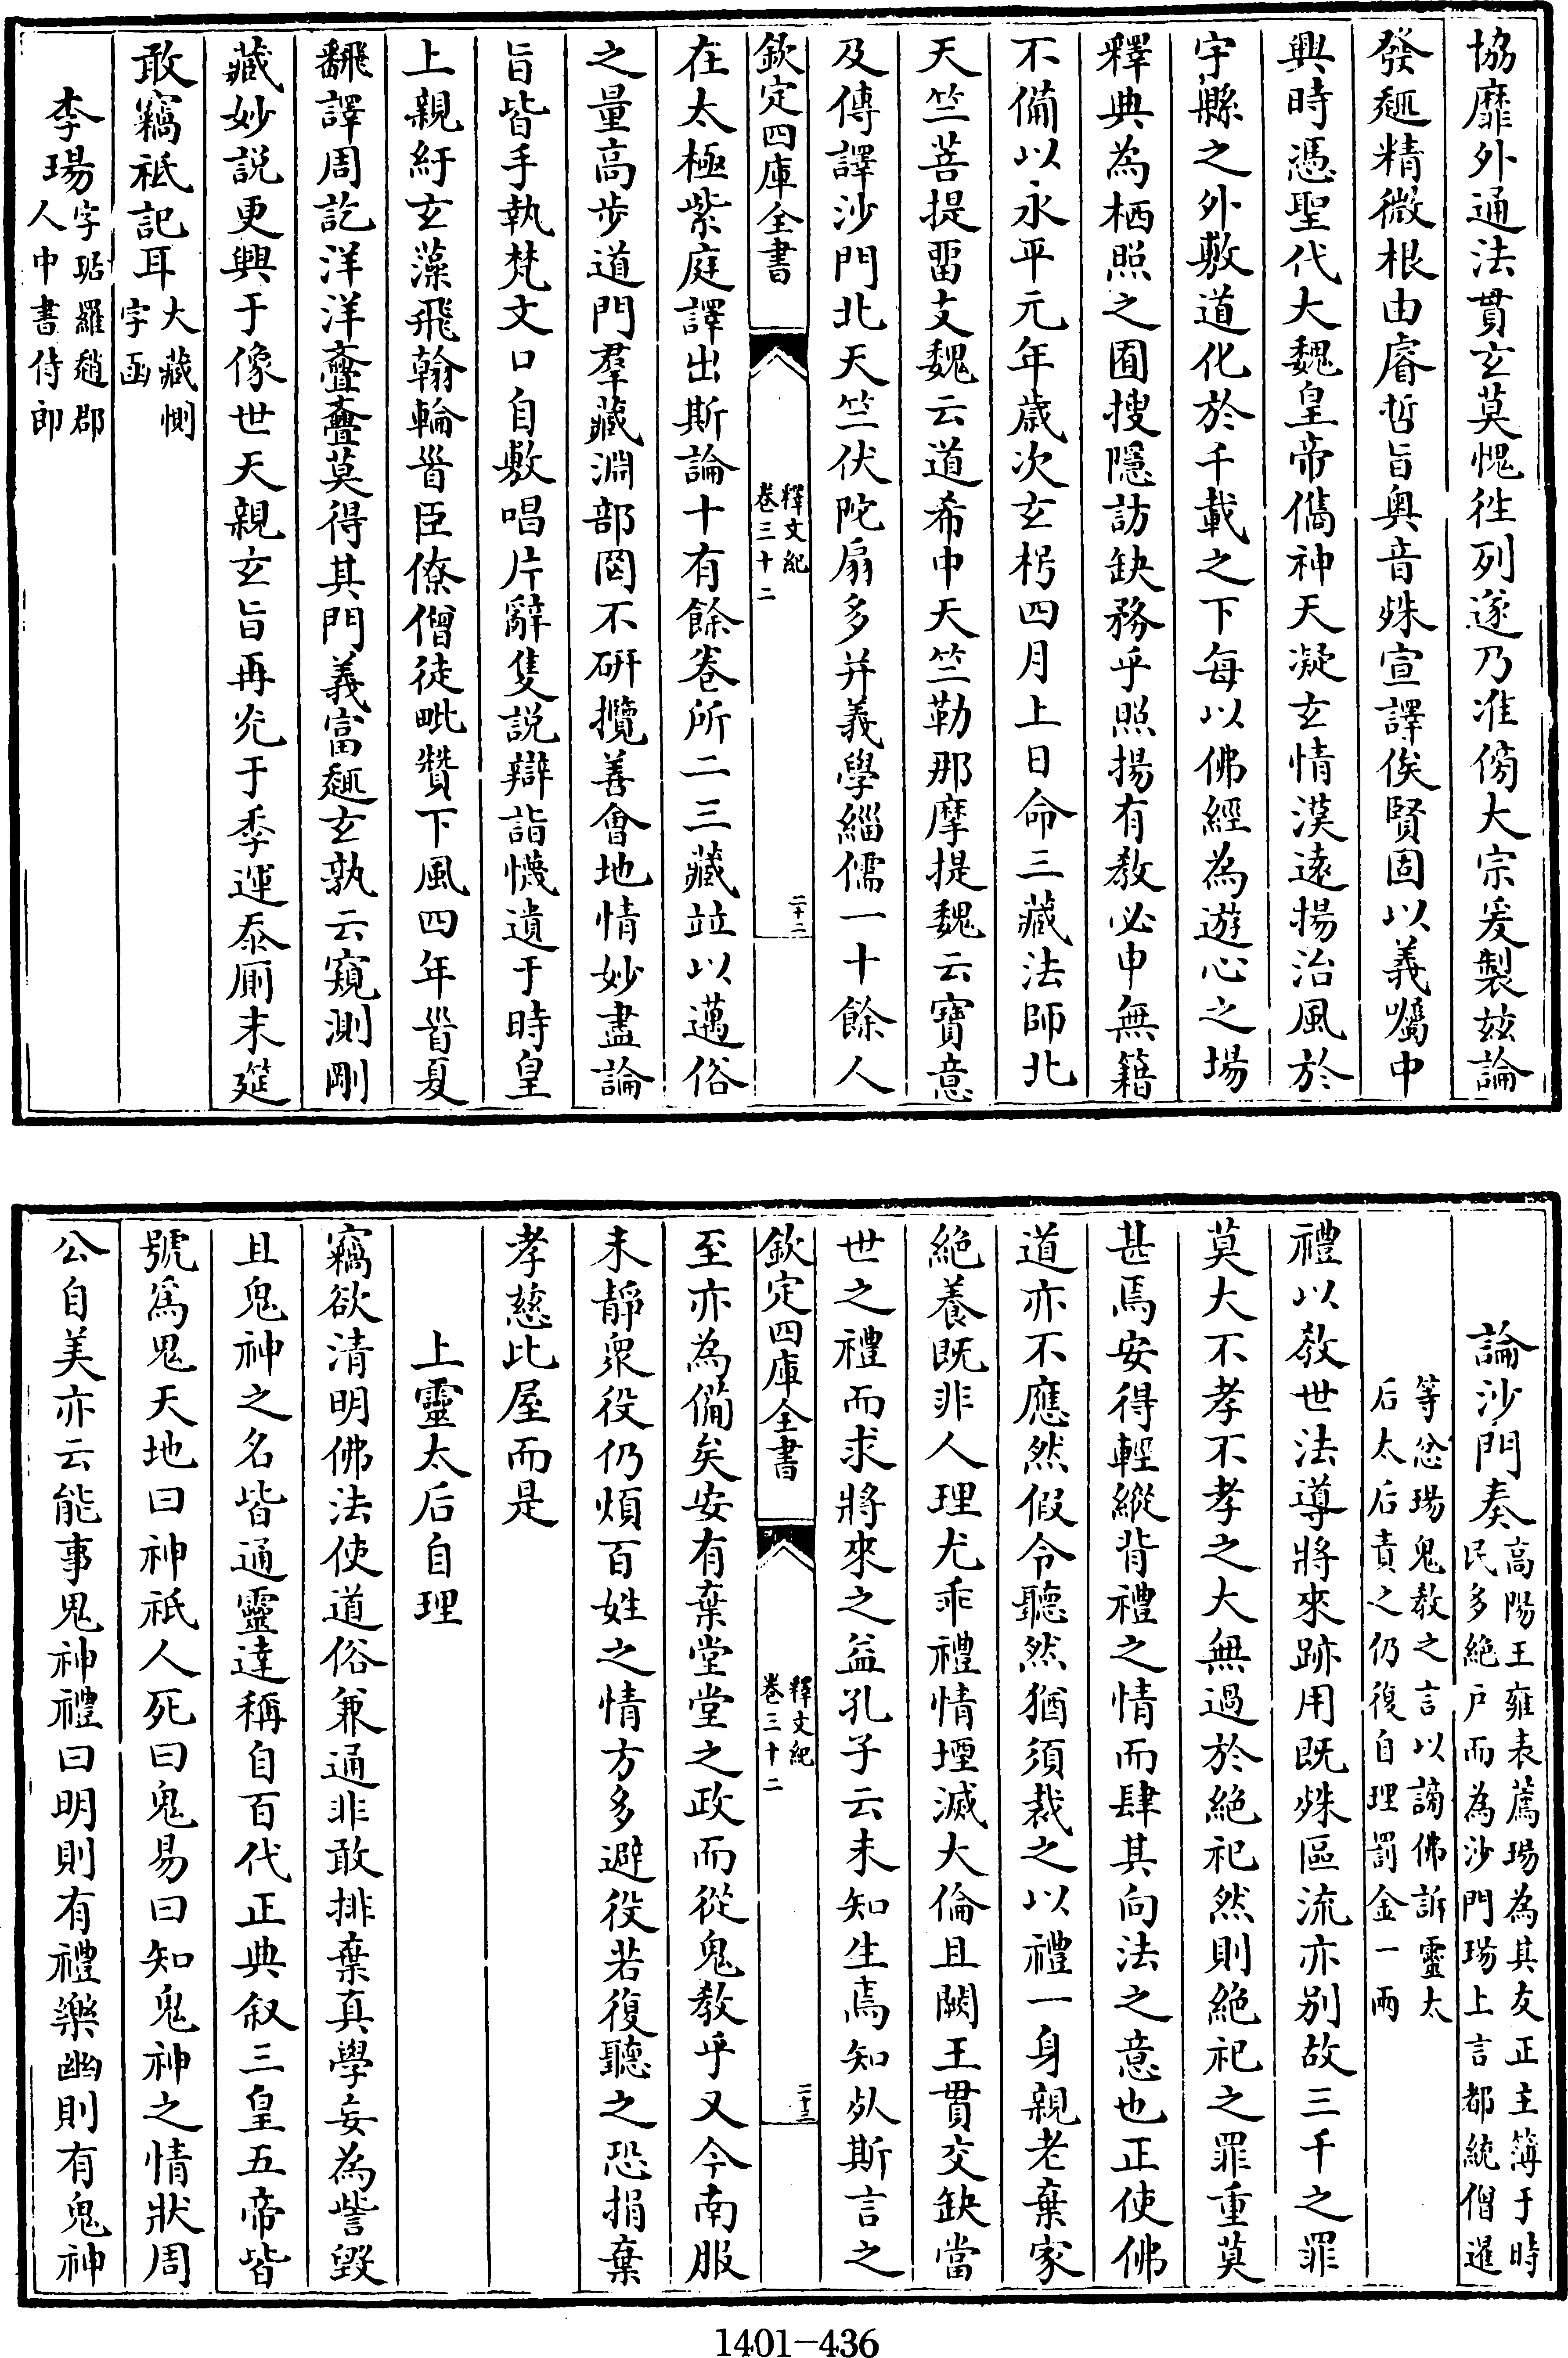 協靡外通法貫玄莫愧徃列遂乃准傍大宗爰製兹論
發趣精微根由睿哲旨奥音殊宣譯俟賢固以義囑中
興時憑聖代大魏皇帝儁神天凝玄情漠遠揚治風於
宇縣之外敷道化於千載之下每以佛經為遊心之場
釋典為栖照之囿搜隱訪缺務乎照揚有教必申無籍
不備以永平元年歲次玄枵四月上日命三藏法師北
天竺菩提畱支魏云道希中天竺勒那摩提魏云寶意
及傳譯沙門北天竺伏陀扇多并義學緇儒一十餘人
欽定四庫全書
釋文紀
卷三十二
二十二
在太極紫庭譯出斯論十有餘卷所二三藏竝以邁俗
之量高步道門羣藏淵部罔不研攬善會地情妙盡論
旨皆手執梵文口自敷唱片辭隻説辯詣懱遺于時皇
上親紆玄藻飛翰輪首臣僚僧徒毗贊下風四年首夏
飜譯周訖洋洋亹亹莫得其門義富趣玄孰云窺測剛
藏妙説更興于像世天親玄旨再光于季運忝厠末筵
敢竊祗記耳大藏惻
字函
李瑒字琚羅趙郡
人中書侍郎
論沙門奏高陽王雍表薦瑒為其友正主簿于時
民多絶户而為沙門瑒上言都統僧暹
等忿瑒鬼教之言以謗佛訴靈太
后太后責之仍復自理罰金一兩
禮以教世法導將來跡用既殊區流亦别故三千之罪
莫大不孝不孝之大無過於絶祀然則絶祀之罪重莫
甚焉安得輕縱背禮之情而肆其向法之意也正使佛
道亦不應然假令聽然猶須裁之以禮一身親老棄家
絶養既非人理尤乖禮情堙滅大倫且闕王貫交缺當
世之禮而求將來之益孔子云未知生焉知死斯言之
欽定四庫全書
釋文紀
卷三十二
二十三
至亦為備矣安有棄堂堂之政而從鬼教乎又今南服
未靜衆役仍煩百姓之情方多避役若復聽之恐捐棄
孝慈比屋而是
上靈太后自理
竊欲清明佛法使道俗兼通非敢排棄真學妄為訾毁
且鬼神之名皆通靈達稱自百代正典叙三皇五帝皆
號爲鬼天地曰神祇人死曰鬼易曰知鬼神之情狀周
公自美亦云能事鬼神禮曰明則有禮樂幽則有鬼神
1401-436